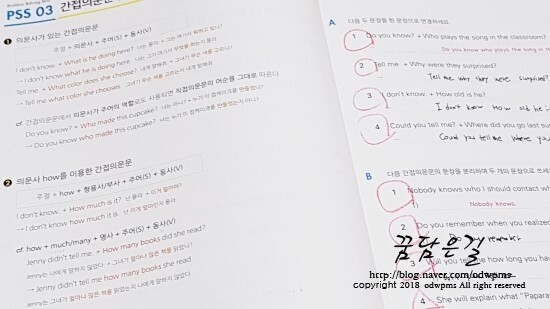 PSS 03 간접의문문
1 의문사가 있는 간접의문문
주절 + 의문사 + 주어(S) + 동사(V)
I don't know. + What is he doing here?
→ I don't know what he is doing here.
Tell me. + What color does she choose?
→ Tell me what color she chooses.
cf. 간접의문문에서 의문사가 주어의 역할로도 사용되면 직접의문문의 어순을 그대로 따른다
Do you know? + Who made this cupcake?
→ Do you know who made this cupcake?
2 의문사 how를 이용한 간접의문문
주절 + how + 형용사/부사 + 주어(S) + 동사(V)
I don't know. + How much is it?
→ I don't know how much it is.
cf. how + much/many + 명사 + 주어(S) + 동사(V)
Jenny didn't tell me. + How many books did she read?
Jenny는 내게 말하지 않았다. + 그녀가 얼마나 많은 책을 읽었니?
→ Jenny didn't tell me how many books she read
Jenny는 그녀가 얼마나 많은 책을 읽었는지 내게 말하지 않았다
A 다음 두 문장을 한 문장으로 연결하세요.
1 Do you know? + Who plays the song in the classroom?
Do you know who plays the song in the
2 Tell me. + Why were they surprised?
Tell me why they were surprised.
3 I don't know. + How old is he?
I don't know how old he
4 Could you tell me? + Where did you go last
Could you tell me where you
B 다음 간접의문문의 문장을 분리하여 두 개의 문장으로
1 Nobody knows who I should contact
Nobody knows.
2 Do you remember when you realized
Do you remember
3 Will you tell me how long you
4 She will explain what "Papara
꿈담은길
http://blog.naver.com/odwpms
copyright 2018 odwpms All right reserved